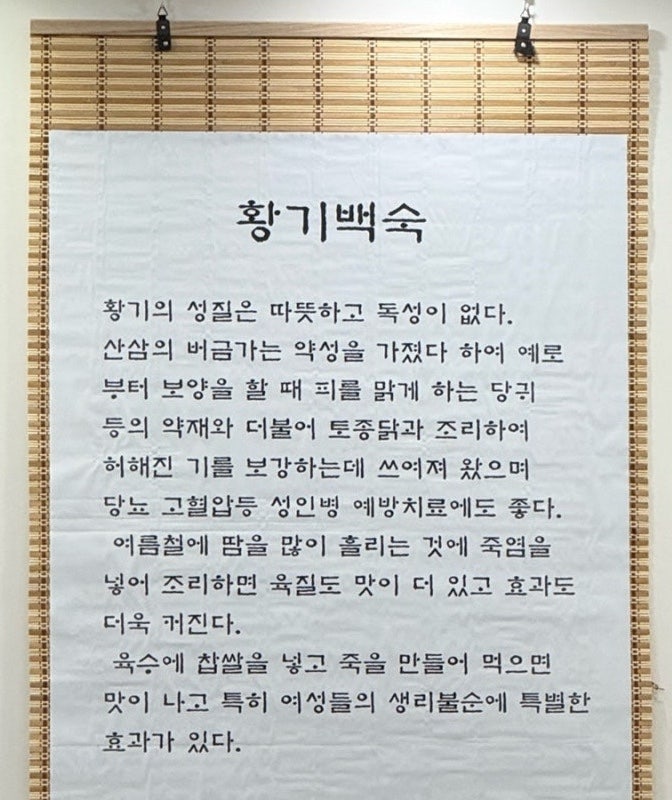 황기백숙
황기의 성질은 따뜻하고 독성이 없다.
산삼의 버금가는 약성을 가졌다 하여 예로
부터 보양을 할 때 피를 맑게 하는 당귀
등의 약재와 더불어 토종닭과 조리하여
허해진 기를 보강하는데 쓰여져 왔으며
당뇨 고혈압등 성인병 예방치료에도 좋다.
여름철에 땀을 많이 흘리는 것에 죽염을
넣어 조리하면 육질도 맛이 더 있고 효과도
더욱 커진다.
육수에 찹쌀을 넣고 죽을 만들어 먹으면
맛이 나고 특히 여성들의 생리불순에 특별한
효과가 있다.